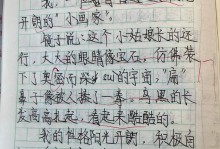 开朗的"小画家"。
镜子说:"这个小姑娘长的还
行,大大的眼睛像宝石,仿佛装
下了奥密而深的宇宙,"扁"
鼻子像被人揍了一拳。乌黑的长
发高高扎起,看起来酷酷的。
我的性格阳光开朗,积极自